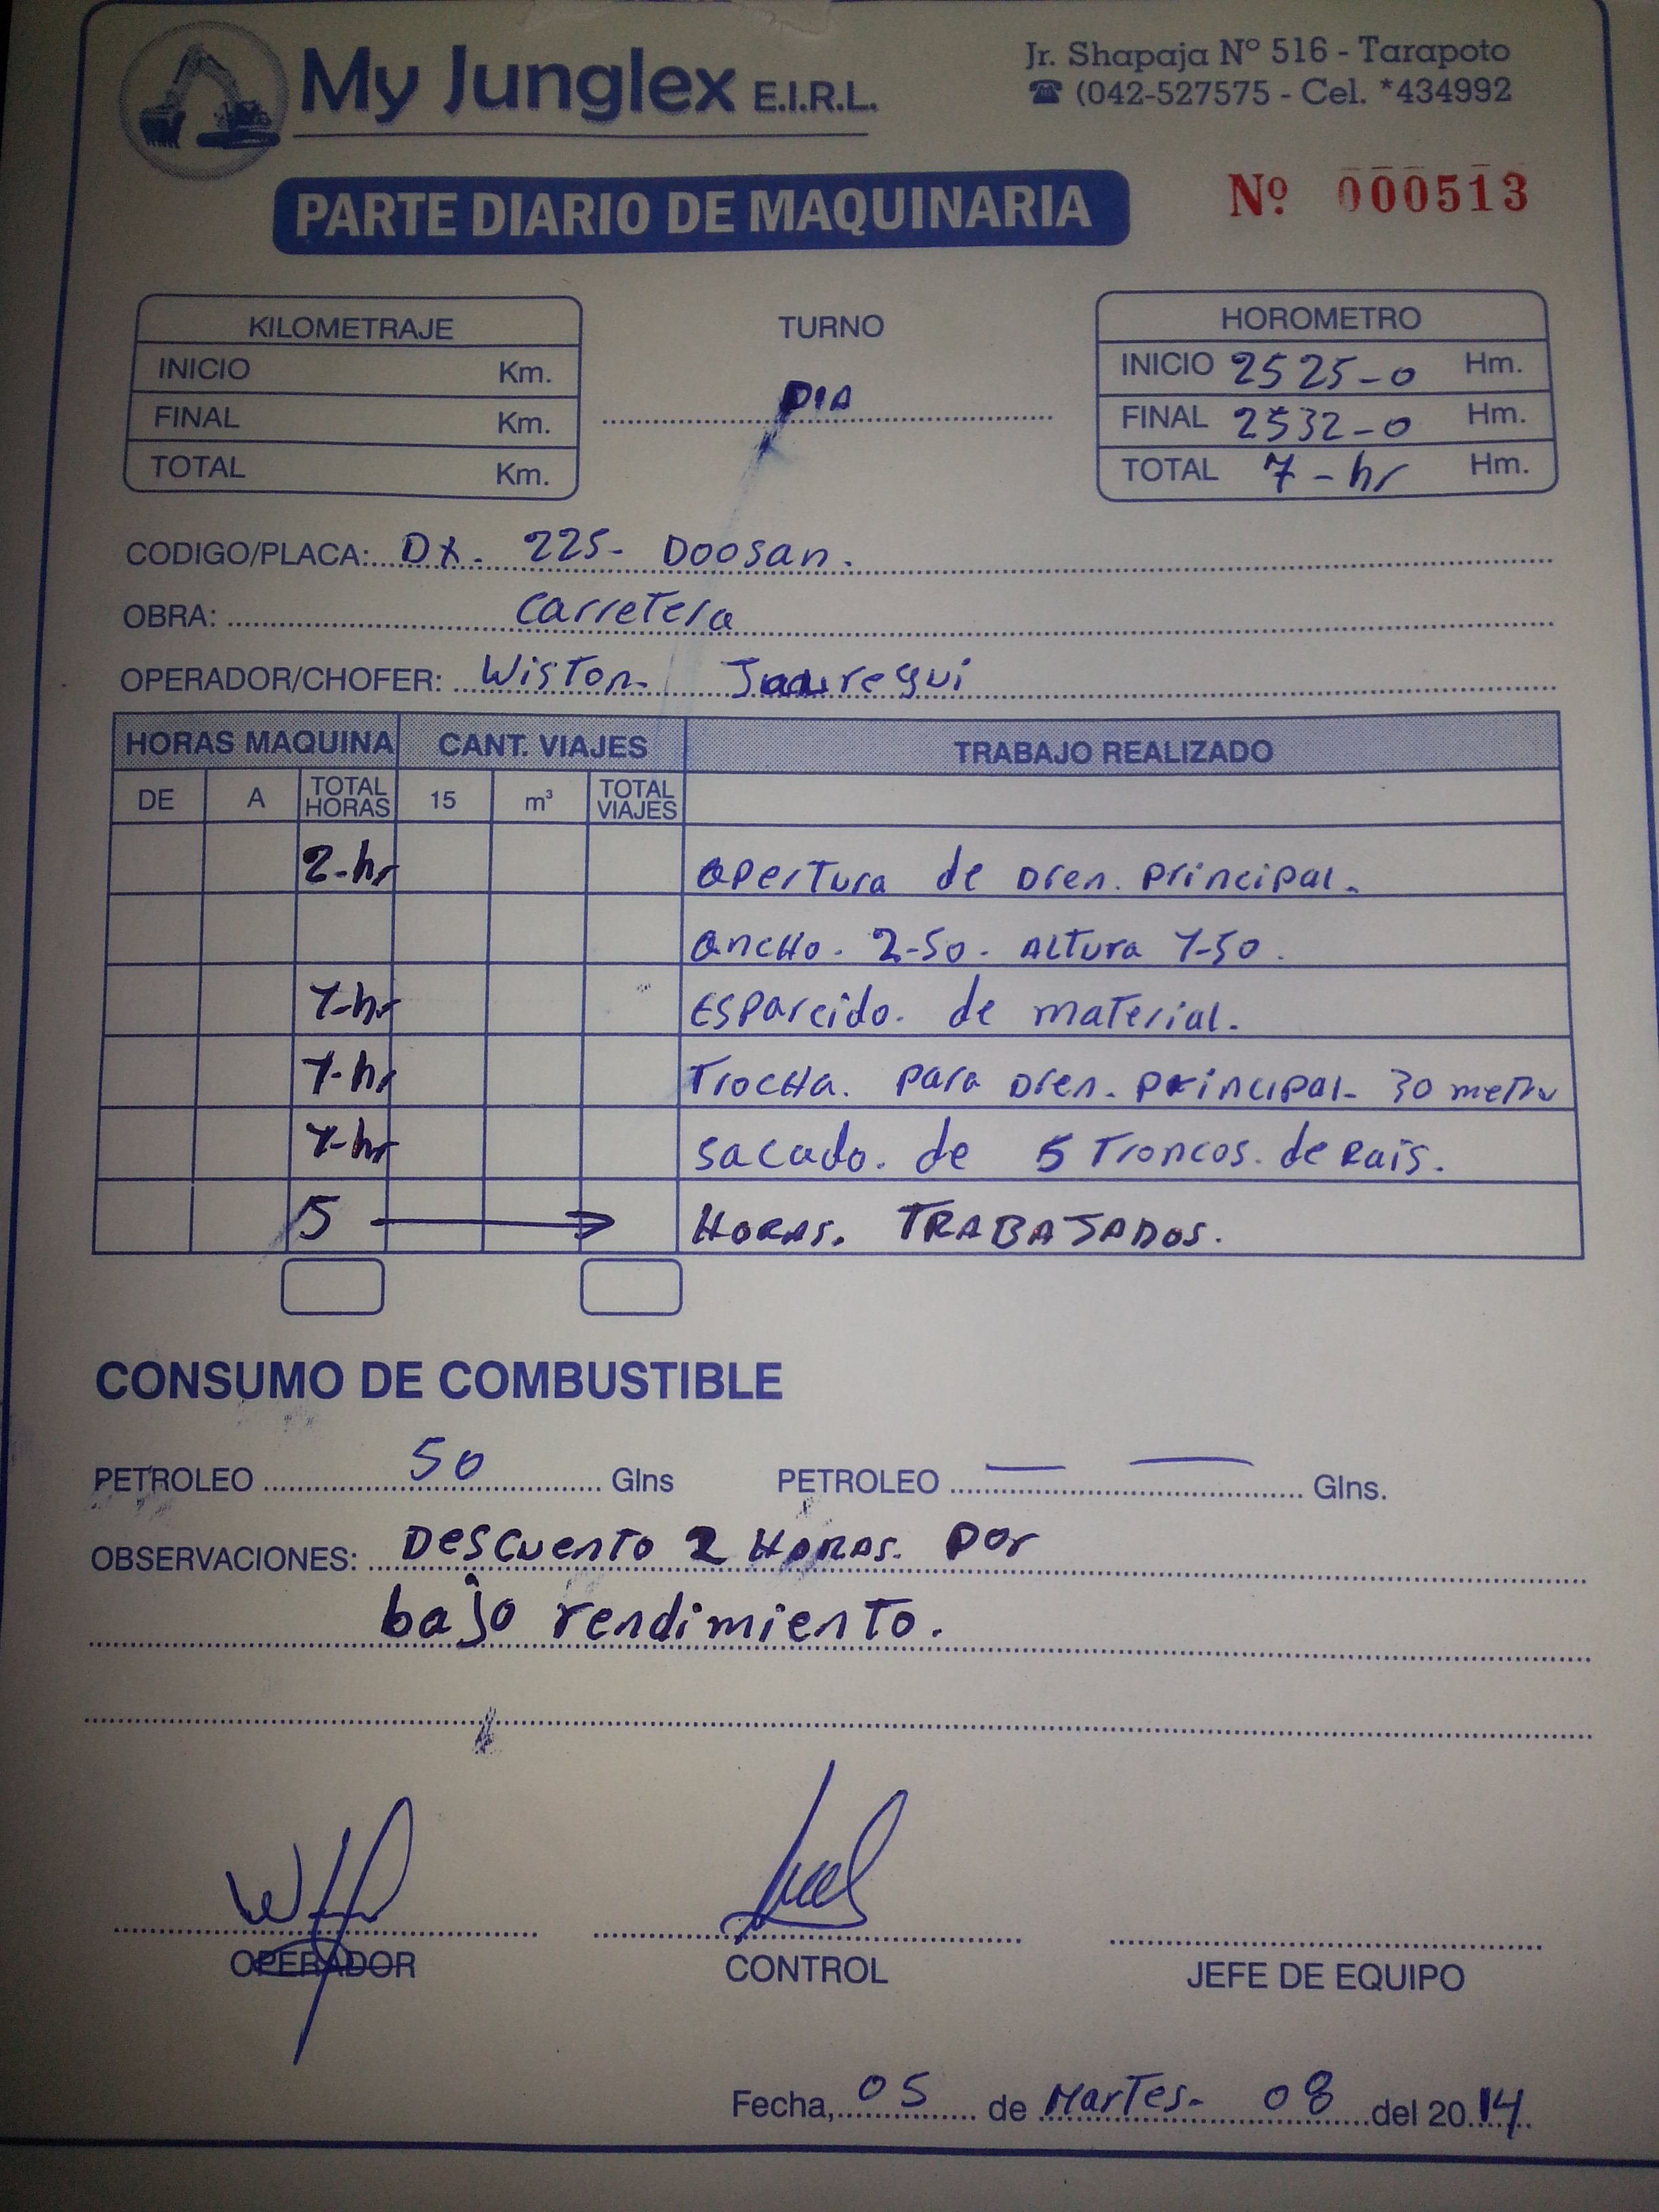 My Junglex E.I.R.L.
Jr. Shapaja Nº 516 - Tarapoto
☎ (042-527575 - Cel. *434992
PARTE DIARIO DE MAQUINARIA
Nº 000513
KILOMETRAJE
INICIO Km.
FINAL Km.
TOTAL Km.
TURNO
DIA
HOROMETRO
INICIO 2525-0 Hm.
FINAL 2532-0 Hm.
TOTAL 7-hr Hm.
CODIGO/PLACA: DX. 225- Doosan.
OBRA: Carretera
OPERADOR/CHOFER: Wiston- Jauregui
HORAS MAQUINA CANT. VIAJES TRABAJO REALIZADO
DE A TOTAL HORAS 15 m³ TOTAL VIAJES
2-hr apertura de Dren. principal.
ancho. 2-50. Altura 1-50.
1-hr Esparcido. de material.
1-hr Trocha. para Dren. principal- 30 metro
1-hr sacado. de 5 Troncos. de Rais.
5 → HORAS. TRABAJADOS.
CONSUMO DE COMBUSTIBLE
PETROLEO 50 Glns PETROLEO — — Glns.
OBSERVACIONES: Descuento 2 Horas. por
bajo rendimiento.
OPERADOR CONTROL JEFE DE EQUIPO
Fecha, 05 de Martes- 08 del 2014